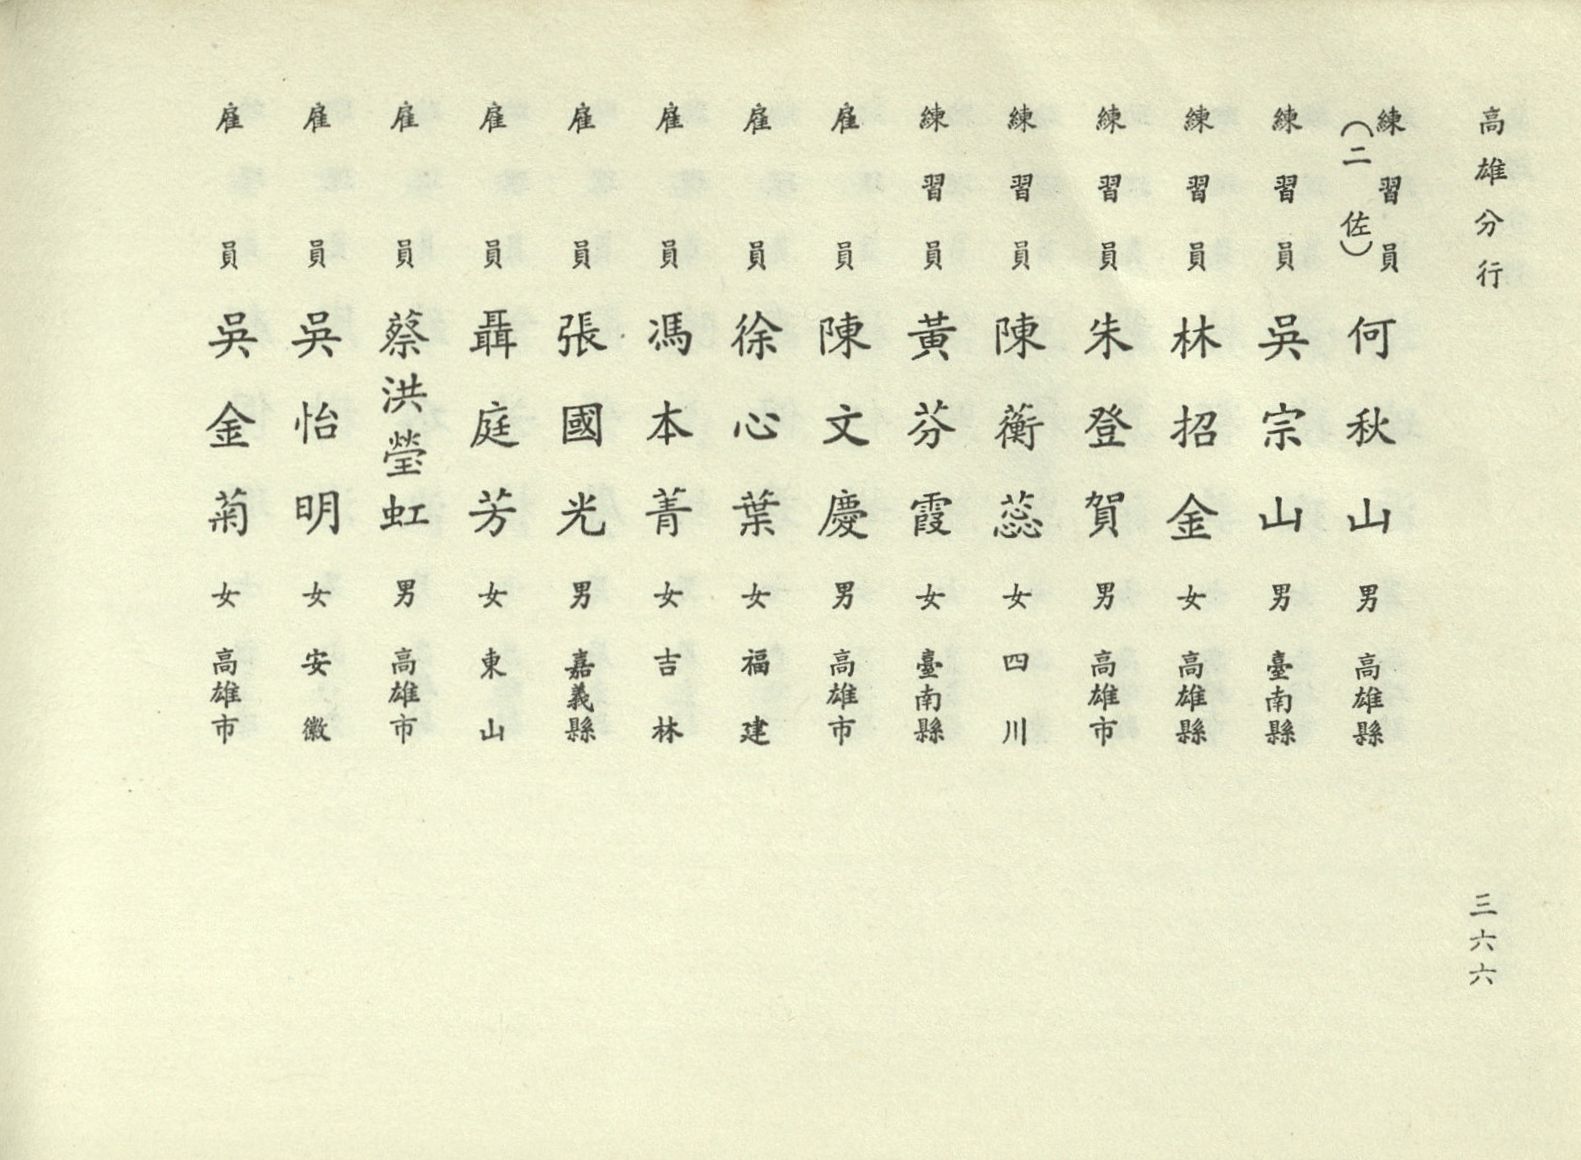 高雄分行
練習員(二佐) 何秋山 男 高雄縣
練習員 吳宗山 男 臺南縣
練習員 林招金 女 高雄縣
練習員 朱登賀 男 高雄市
練習員 陳蘅蕊 女 四川
練習員 黃芬霞 女 臺南縣
雇員 陳文慶 男 高雄市
雇員 徐心葉 女 福建
雇員 馮本菁 女 吉林
雇員 張國光 男 嘉義縣
雇員 聶庭芳 女 東山
雇員 蔡洪瑩虹 男 高雄市
雇員 吳怡明 女 安徽
雇員 吳金菊 女 高雄市
三六六